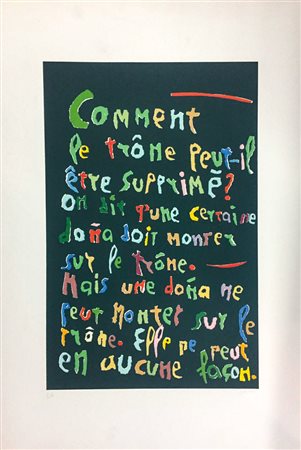 Comment
le trône peut-il
être supprimé?
On dit q'une certaine
doña doit monter
sur le trône.
Mais une doña ne
peut monter sur le
trône. Elle ne peut
en aucune façon.